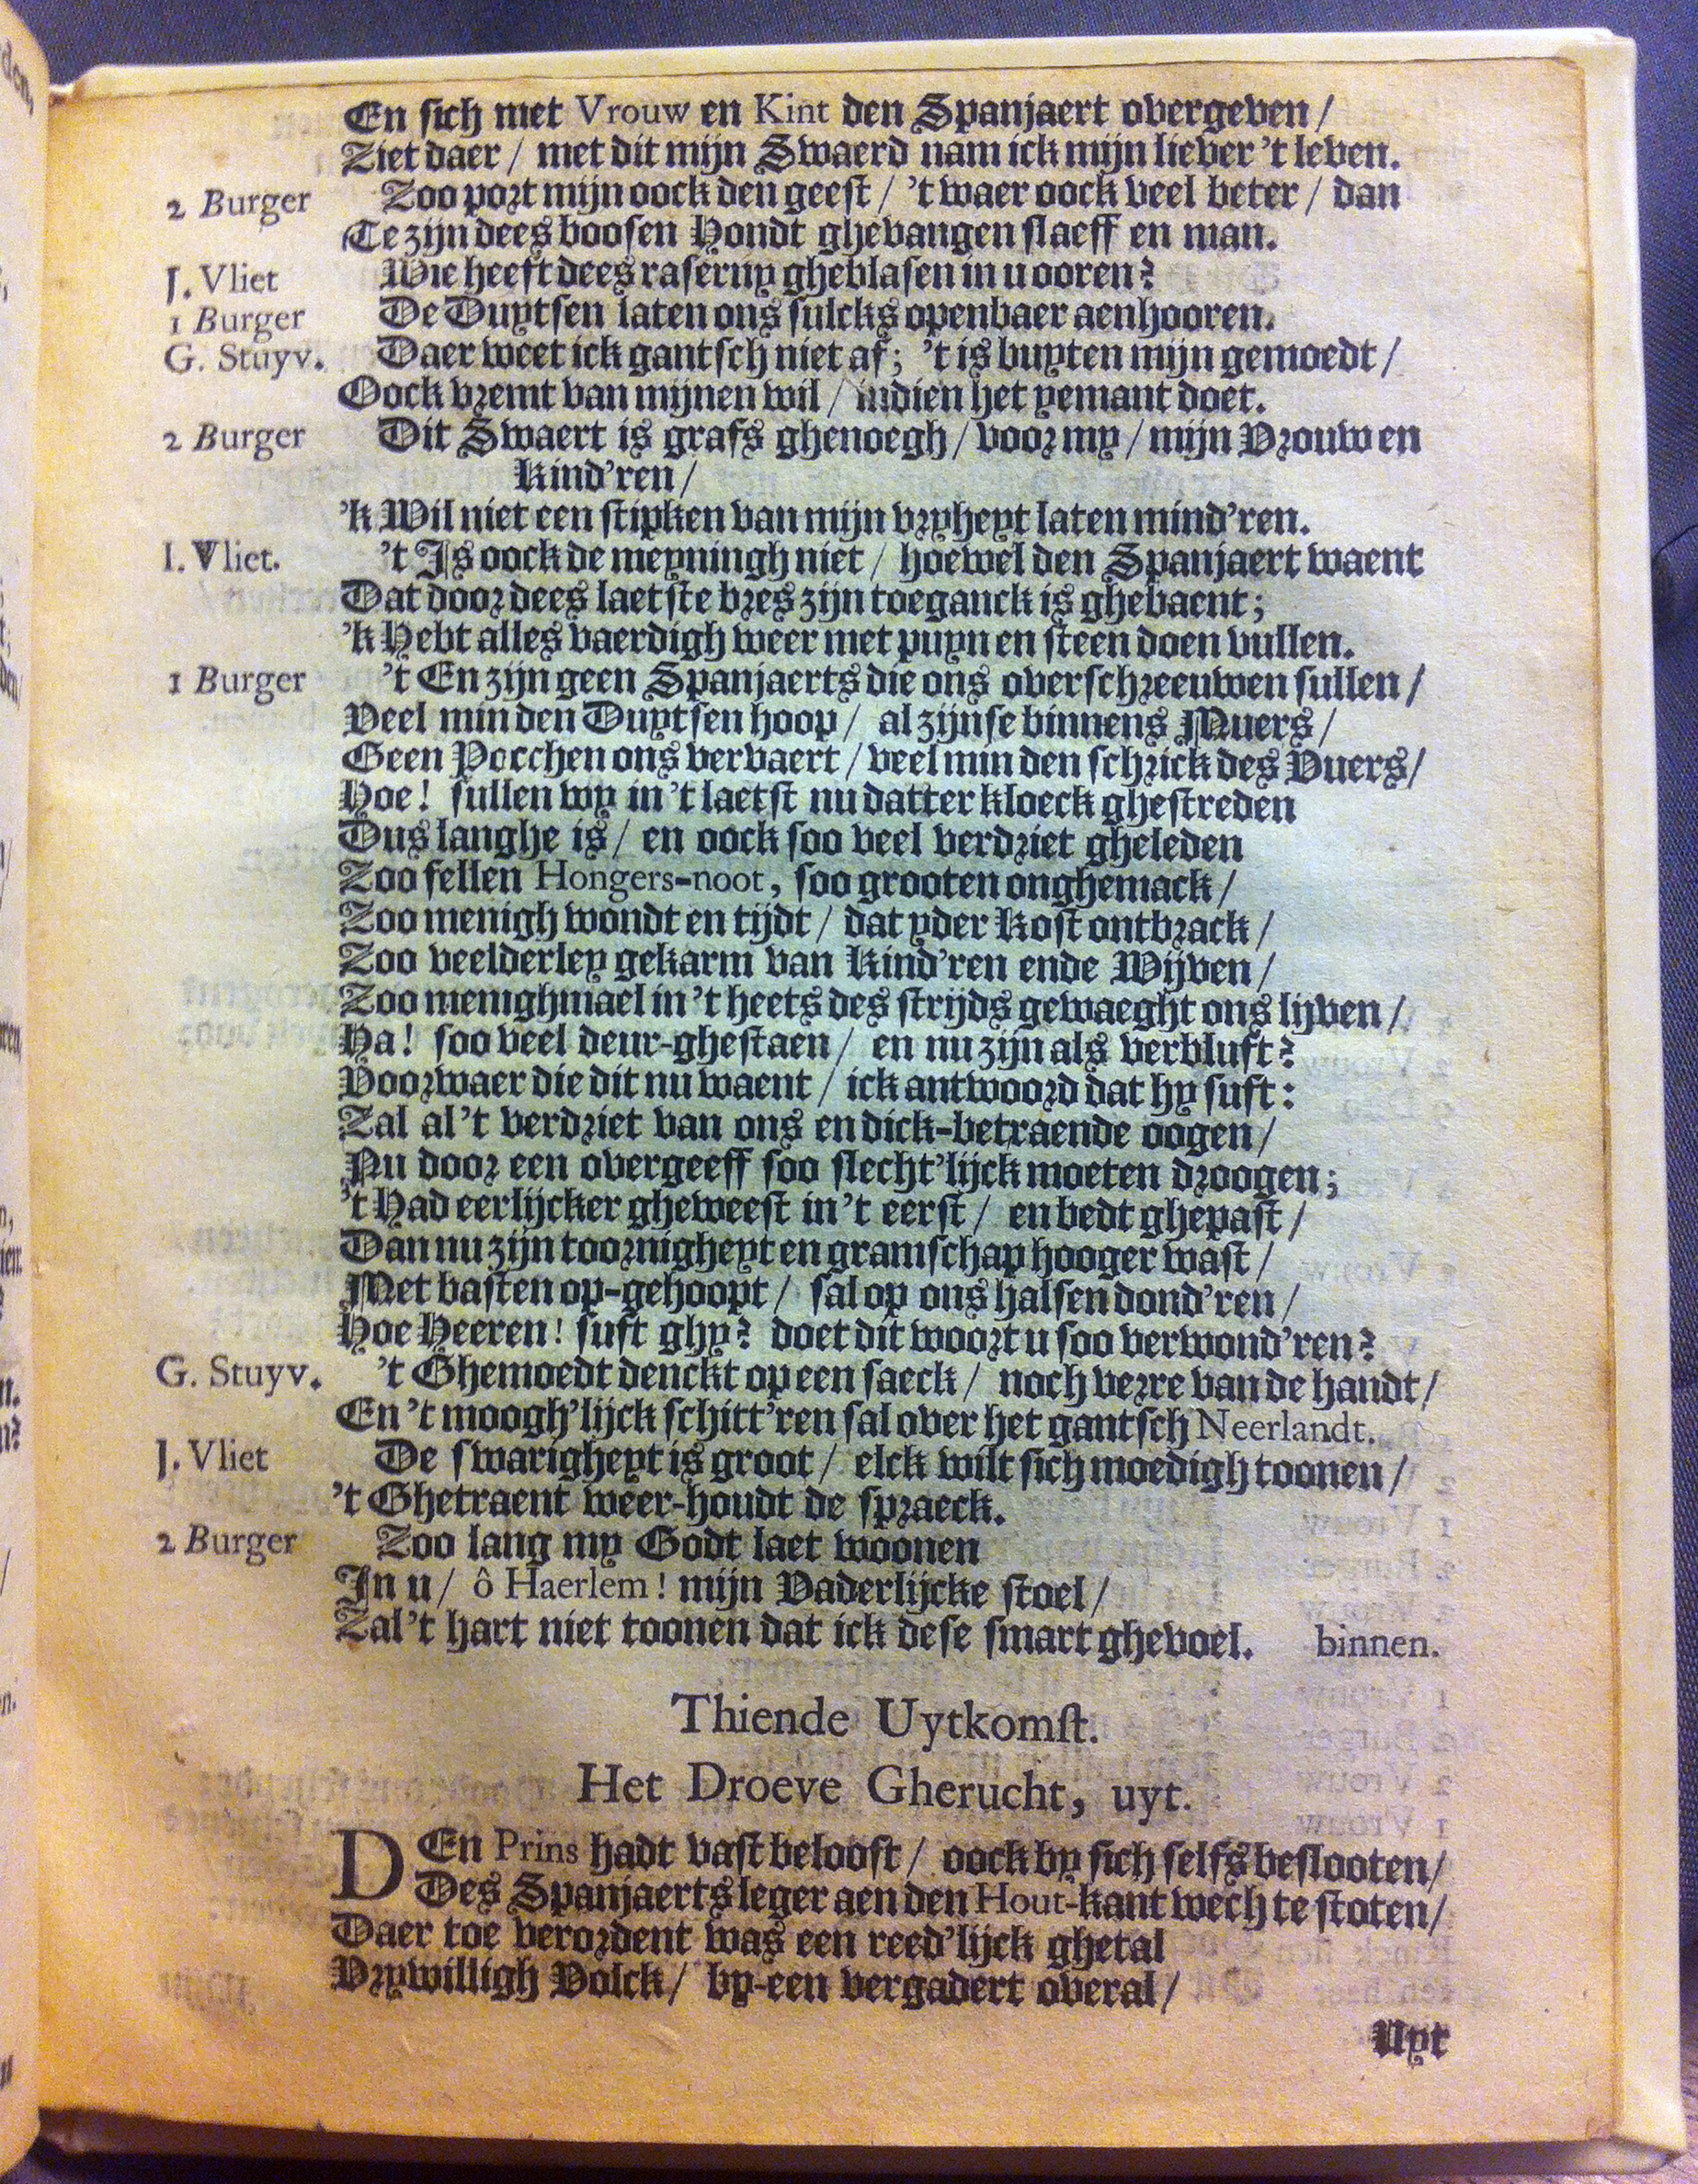 En sich met Vrouw en Kint den Spanjaert overgeven /
Ziet daer / met dit mijn Swaerd nam ick mijn liever 't leven.
2 Burger Zoo port mijn oock den geest / 't waer oock veel beter / dan
Te zijn dees boosen Hondt ghevangen slaeff en man.
J. Vliet Wie heeft dees raserny gheblasen in u ooren?
1 Burger De Duytsen laten ons sulcks openbaer aenhooren.
G. Stuyv. Daer weet ick gantsch niet af; 't is buyten mijn gemoedt /
Oock vremt van mijnen wil / indien het yemant doet.
2 Burger Dit Swaert is grafs ghenoegh / voor my / mijn Vrouw en
Kind'ren /
'k Wil niet een stipken van mijn vryheyt laten mind'ren.
I. Vliet. 't Is oock de meyningh niet / hoewel den Spanjaert waent
Dat door dees laetste bres zijn toeganck is ghebaent;
'k Hebt alles vaerdigh weer met puyn en steen doen vullen.
1 Burger 't En zijn geen Spanjaerts die ons overschreeuwen sullen /
Veel min den Duytsen hoop / al zijnse binnens Muers /
Geen Pocchen ons vervaert / veel min den schrick des Vuers /
Hoe! sullen wy in 't laetst nu datter kloeck ghestreden
Dus langhe is / en oock soo veel verdriet gheleden
Zoo fellen Hongers-noot, soo grooten onghemack /
Zoo menigh wondt en tijdt / dat yder Kost ontbrack /
Zoo veelderley gekarm van Kind'ren ende Wijven /
Zoo menighmael in 't heets des strijds gewaeght ons lijven /
Ha! soo veel deur-ghestaen / en nu zijn als verbluft?
Voorwaer die dit nu waent / ick antwoord dat hy suft:
Zal al 't verdriet van ons en dick-betraende oogen /
Nu door een overgeeff soo slecht'lijck moeten droogen;
't Had eerlijcker gheweest in 't eerst / en bedt ghepast /
Dan nu zijn toornigheyt en gramschap hooger wast /
Met basten op-gehoopt / sal op ons halsen dond'ren /
Hoe Heeren! suft ghy? doet dit woort u soo verwond'ren?
G. Stuyv. 't Ghemoedt denckt op een saeck / noch verre van de handt /
En 't moogh'lijck schitt'ren sal over het gantsch Neerlandt.
J. Vliet De swarigheyt is groot / elck wilt sich moedigh toonen /
't Ghetraent weer-houdt de spraeck.
2 Burger Zoo lang my Godt laet woonen
In u / ô Haerlem! mijn Vaderlijcke stoel /
Zal 't hart niet toonen dat ick dese smart ghevoel. binnen.
Thiende Uytkomst.
Het Droeve Gherucht, uyt.
DEn Prins hadt vast belooft / oock by sich selfs beslooten /
Des Spanjaerts leger aen den Hout-kant wech te stoten /
Daer toe verordent was een reed'lijck ghetal
Vrywilligh Volck / by-een vergadert overal /
Uyt